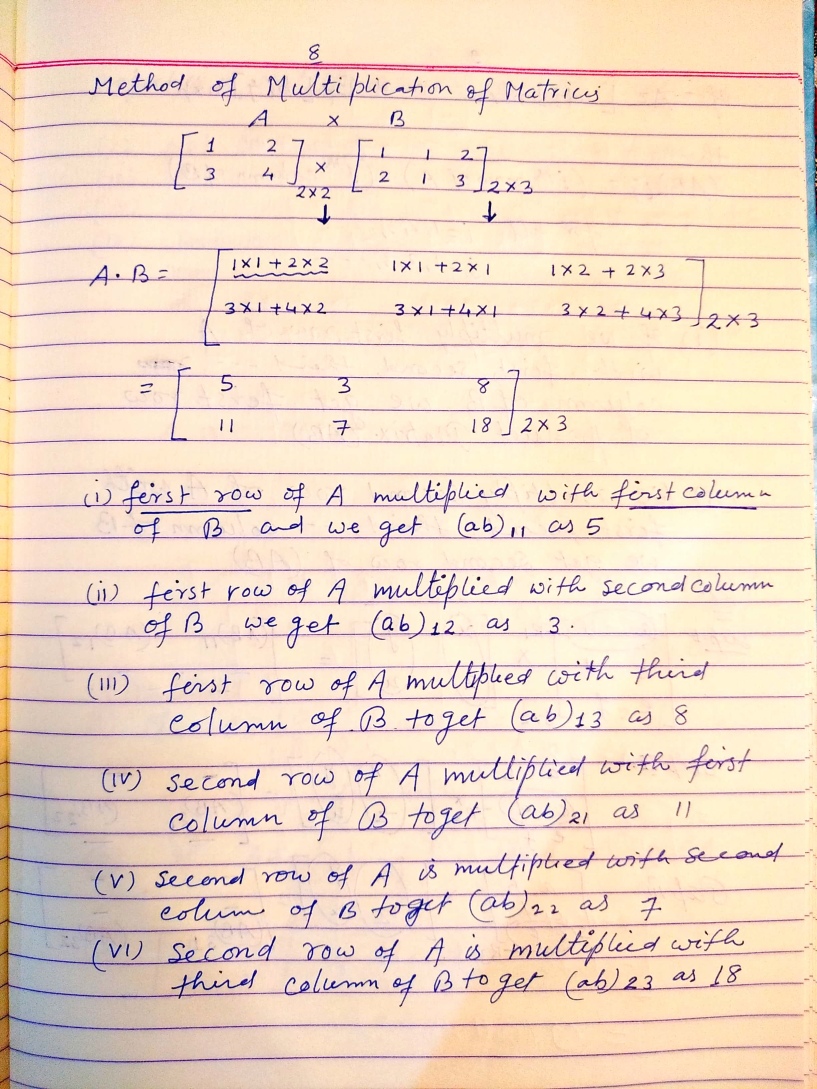 8
Method of Multiplication of Matrices
A × B
[ 1 2 ] × [ 1 1 2 ]
[ 3 4 ] 2×2 [ 2 1 3 ] 2×3
↓ ↓
A·B = [ 1×1+2×2 1×1+2×1 1×2+2×3 ]
[ 3×1+4×2 3×1+4×1 3×2+4×3 ] 2×3
= [ 5 3 8 ]
[ 11 7 18 ] 2×3
(i) first row of A multiplied with first column
of B and we get (ab)11 as 5
(ii) first row of A multiplied with second column
of B we get (ab)12 as 3.
(III) first row of A multiplied with third
column of B to get (ab)13 as 8
(IV) second row of A multiplied with first
column of B to get (ab)21 as 11
(V) second row of A is multiplied with second
colum of B to get (ab)22 as 7
(VI) second row of A is multiplied with
third column of B to get (ab)23 as 18